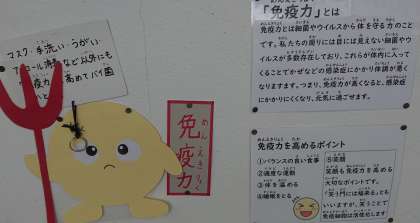 マスク・手洗い・うがい
アルコール消毒など以外にも
高めてバイ菌
免疫力
めんえきりょく
「免疫力」とは
免疫力とは細菌やウイルスから体を守る力のこと
です。私たちの周りには目には見えない細菌やウ
イルスが多数存在しており、これらが体内に入って
くることでかぜなどの感染症にかかり体調が悪く
なりますます。つまり、免疫力が高くなると、感染症
にかかりにくくなり、元気に過ごせます。
免疫力を高めるポイント
①バランスの良い食事
②適度な運動
③体を温める
④睡眠をとる
⑤笑顔
笑顔も免疫力を高める
大切なポイントです。
「笑う門には福来る」とも
いいますが、笑うことで
免疫細胞は活性化します